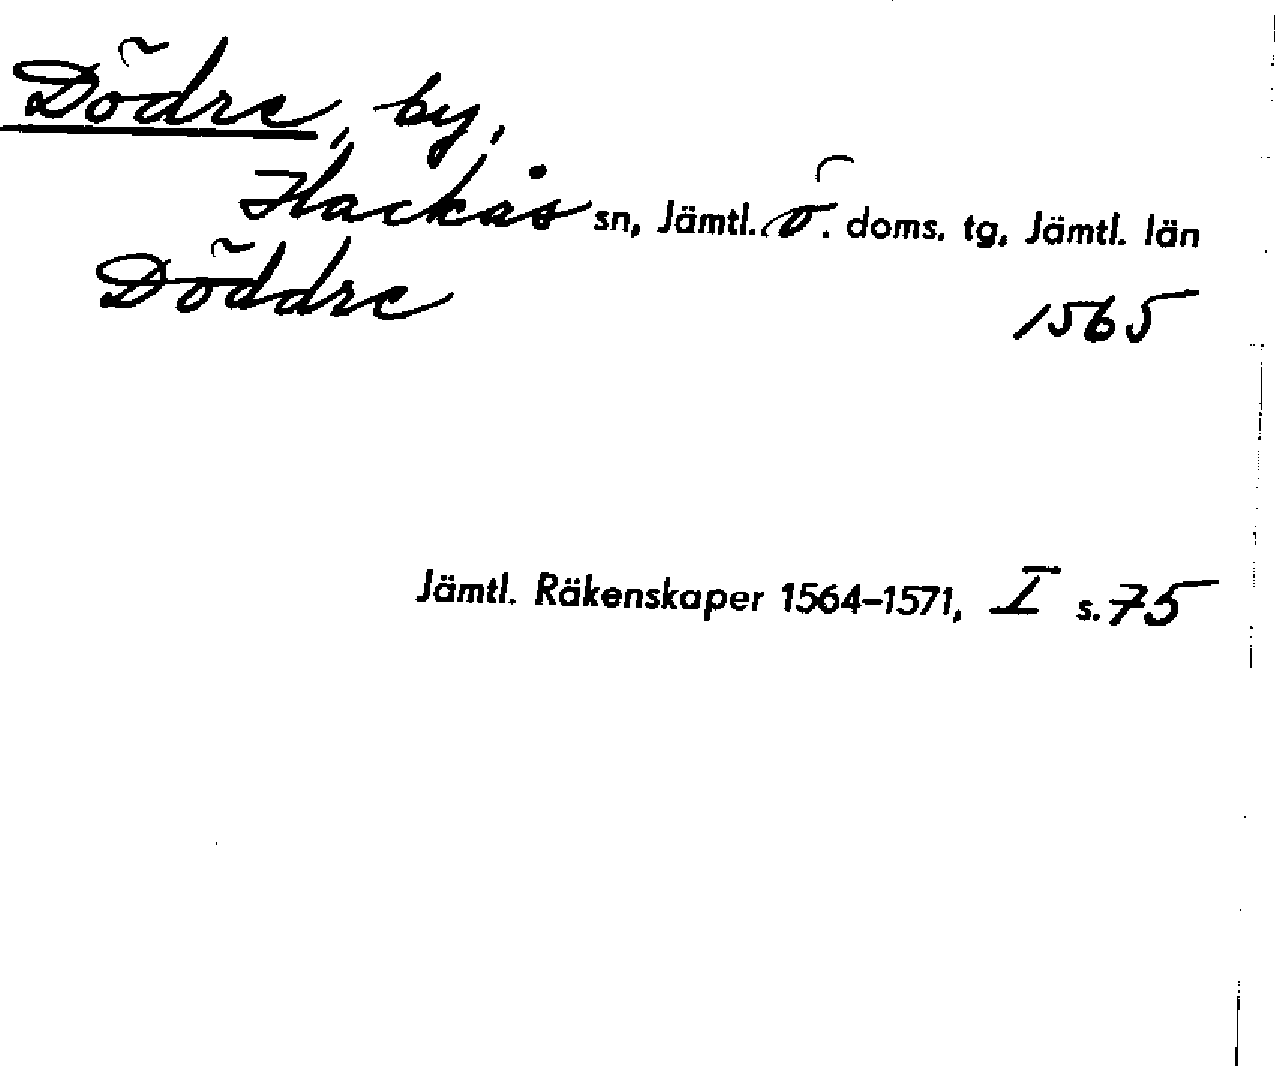 Dödre, by,
Hackås sn, Jämtl. ö. doms. tg, Jämtl. län
Döddre 1565
Jämtl. Räkenskaper 1564–1571, I s. 75